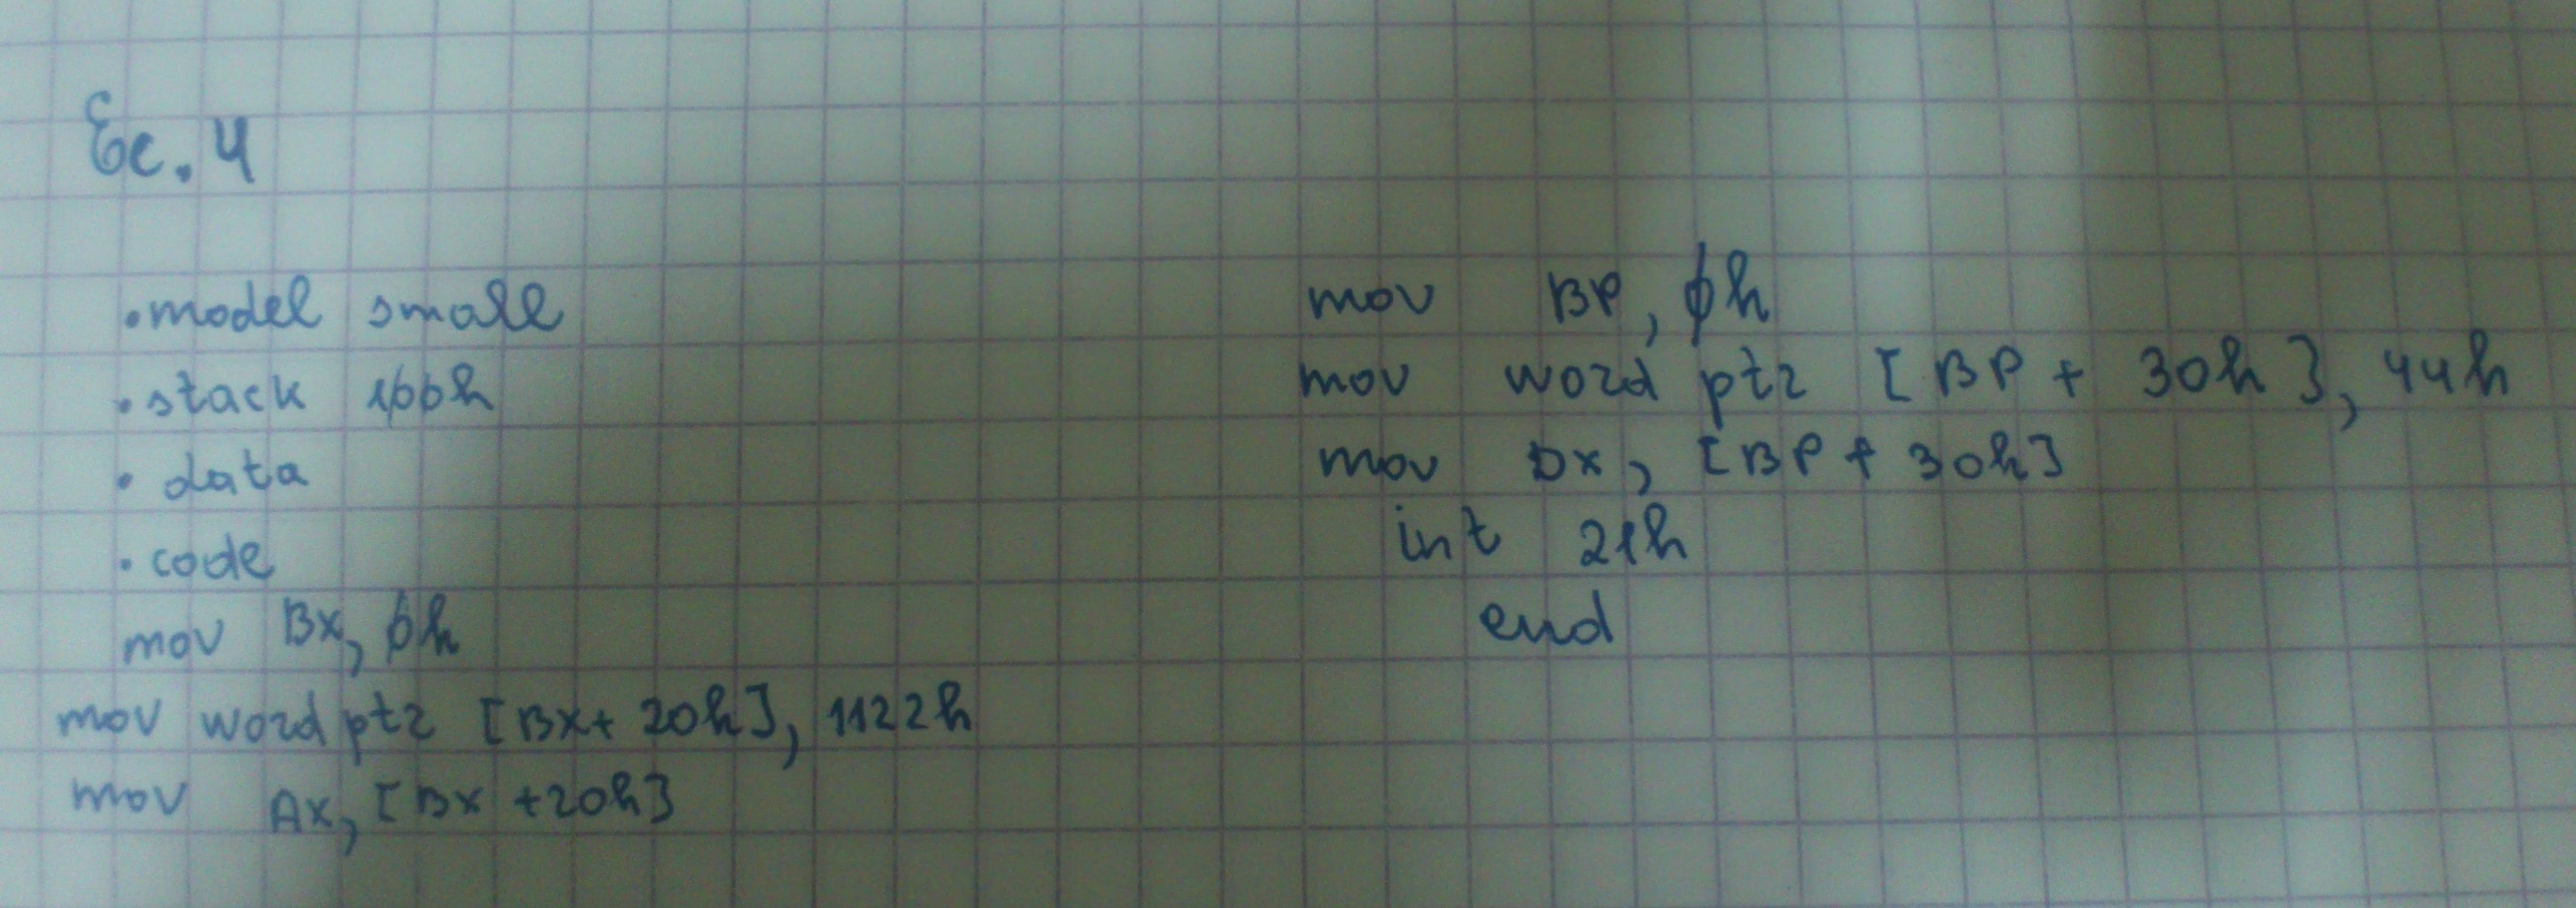 Ec. 4
.model small
.stack 100h
.data
.code
mov BX, 0h
mov word ptr [BX+ 20h], 1122h
mov AX, [BX +20h]
mov BP, 0h
mov word ptr [BP + 30h], 44h
mov DX, [BP + 30h]
int 21h
end